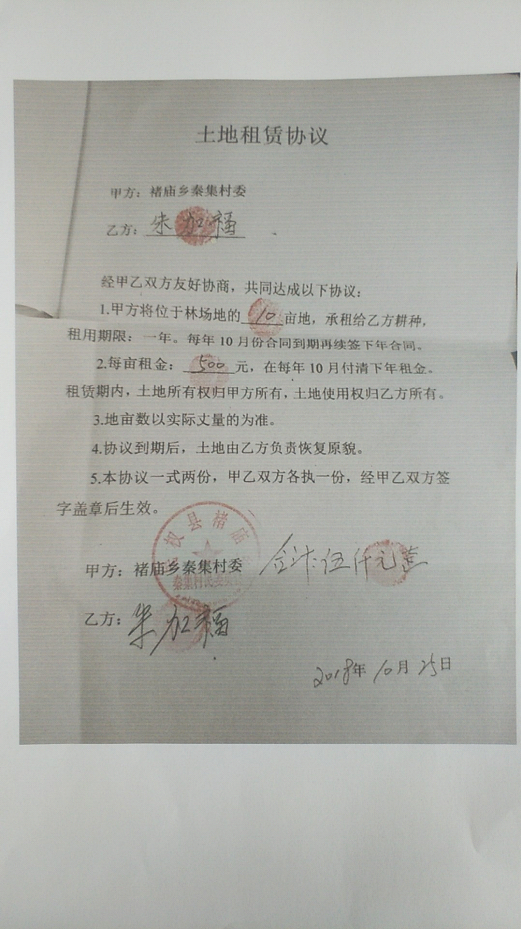 土地租赁协议
甲方：褚庙乡秦集村委
乙方：朱加福
经甲乙双方友好协商，共同达成以下协议：
1.甲方将位于林场地的 10 亩地，承租给乙方耕种，
租用期限：一年。每年10月份合同到期再续签下年合同。
2.每亩租金：500 元，在每年10月付清下年租金。
租赁期内，土地所有权归甲方所有，土地使用权归乙方所有。
3.地亩数以实际丈量的为准。
4.协议到期后，土地由乙方负责恢复原貌。
5.本协议一式两份，甲乙双方各执一份，经甲乙双方签
字盖章后生效。
权县褚庙
秦集村民委员会
甲方：褚庙乡秦集村委 合计伍仟元整
乙方：朱加福
2018年10月25日